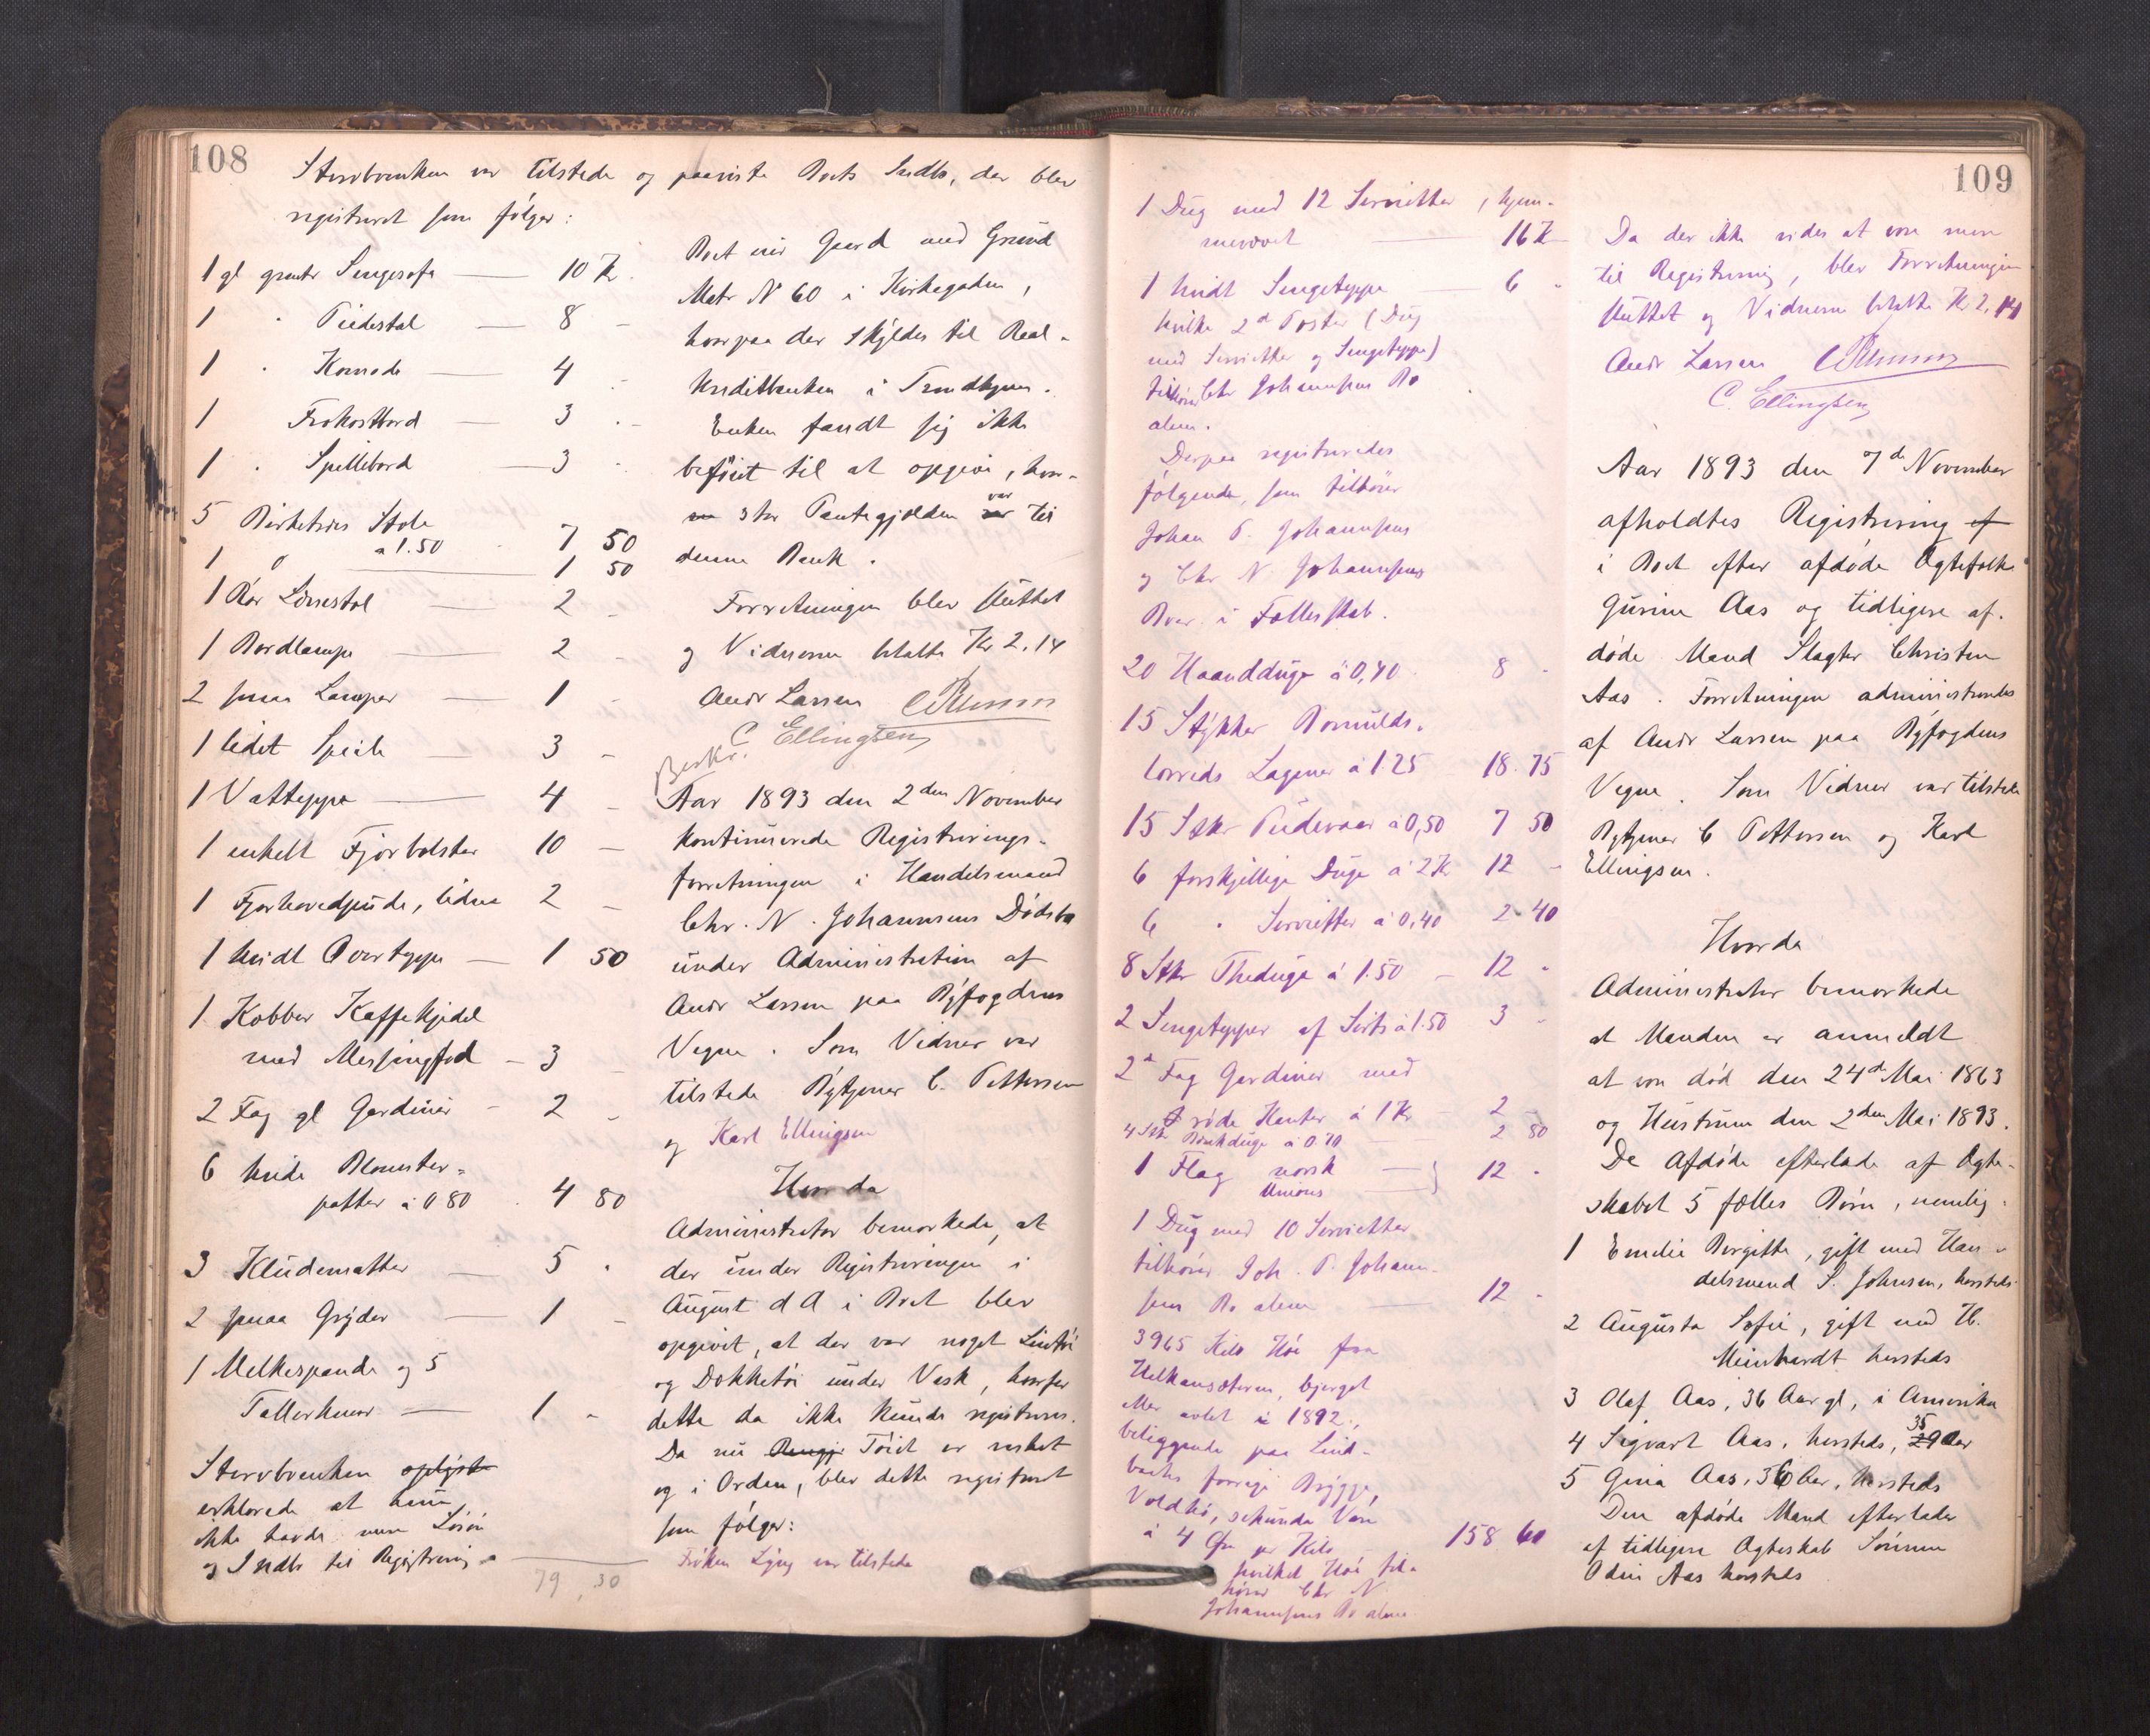 108
Stervboenken var tilstede og paaviste Boets Indbo, der blev
registreret som følger:
1 gl grønt Sengesofa — 10 Kr
1 " Piedestal — 8 –
1 " Komode — 4 –
1 Frokostbord — 3 –
1 " Spillebord — 3
5 Birketræs Stole
a 1.50 7 50
1 d° — 1 50
1 Rør Lænestol — 2 –
1 Bordlampe — 2 –
2 smaa Lamper — 1 –
1 lidet Speile — 3 –
1 Vatteppe — 4 –
1 enkelt Fjørbolster 10 –
1 Fjørhovedpude, liden 2 –
1 hvidt Overteppe — 1 50
1 Kobber Kaffekjedel
med Messingfod – 3 –
2 Fag gl Gardiner – 2 –
6 hvide Blomster-
potter á 0 80 4 80
3 Kludematter — 5 "
2 smaa Gryder — 1 –
1 Melkespande og 5
Tallerkener — 1 –
Stervboenken oplyste
erklærede at hun
ikke havde mere Løsøre
og Indbo til Registrering
79,30
Boet eier Gaard med Grund
Matr N° 60 i Kirkegaden,
hvorpaa der skyldes til Real-
kreditbanken i Trondhjem.
Enken fandt sig ikke
beføiet til at opgive, hvor-
stor Pantegjælden var til
denne Bank.
Forretningen blev sluttet
og Vidnerne betalte Kr 2,14
Andr Larsen C Pettersen
C Ellingsen
Beskr.
Aar 1893 den 2den November
kontinuerede Registrerings-
forretningen i Handelsmand
Chr. N. Johannsens Dødsbo
under Administration af
Andr Larsen paa Byfogdens
Vegne. Som Vidner var
tilstede Bytjener C. Pettersen
og Karl Ellingsen
Hvorda
Administrator bemærkede, at
der under Registreringen i
August d A i Boet blev
opgivet, at der var noget Lintøi
og Dækketøi under Vask, hvorfor
dette da ikke kunde registreres.
Da nu Rengj Tøiet er vasket
og i Orden, blev dette registreret
som følger:
Frøken Lyng var tilstede
109
1 Dug med 12 Servietter, hjem-
mevævet — 16 Kr
1 hvidt Sengeteppe — 6 "
hvilke 2de Poster (Dug
med Servietter og Sengeteppe)
tilhører Chr Johannsens Bo
alene.
Derpaa registreredes
følgende, som tilhører
Johan P. Johannsens
og Chr N. Johannsens
Boer i Fællesskab.
20 Haandduge á 0,40 8 "
15 Stykker Bomulds-
lærreds Lagener á 1.25 18.75
15 Stkr Pudevaar á 0,50 7 50
6 forskjellige Duge á 2 Kr 12 –
6 " Servietter á 0,40 2 40
8 Stkr Theduge á 1.50 – 12 "
2 Sengetepper af Sirts á 1.50 3 "
2 Fag Gardiner med
røde Kanter á 1 Kr – 2 –
4 Stk Bænkduge á 0.70 — 2 80
1 Flag norsk — } 12 "
Unions —
1 Dug med 10 Servietter
tilhører Joh. P. Johann-
sens Bo alene — 12 "
3965 Kilo Høi fra
Helkansæteren, bjerget
eller avlet i 1892,
beliggende paa Lind-
bachs forrige Brygge,
Voldhø, sekunda Vare
á 4 Øre pr Kilo — 158.60
hvilket Høi til-
hører Chr N
Johannsens Bo alene.
Da der ikke vides at være mere
til Registrering, blev Forretningen
sluttet og Vidnerne betalte Kr 2.14
Andr Larsen C Pettersen
C. Ellingsen
Aar 1893 den 7de November
afholdtes Registrering ef
i Boet efter afdøde Ægtefolk
Gurine Aas og tidligere af-
døde Mand Slagter Christen
Aas. Forretningen administreredes
af Andr Larsen paa Byfogdens
Vegne. Som Vidner var tilstede
Bytjener C Pettersen og Karl
Ellingsen.
Hvorda
Administrator bemærkede
at Manden er anmeldt
at være død den 24de Mai 1863
og Hustruen den 2den Mai 1893.
De Afdøde efterlade af Ægte-
skabet 5 fælles Børn, nemlig:
1 Emilie Birgitte, gift med Han-
delsmand S. Johnsen, hersteds
2 Augusta Sofie, gift med H.
Meinhardt hersteds
3 Olaf Aas, 36 Aar gl, i Amerika
4 Sigvart Aas, hersteds, 29 35 Aar
5 Gina Aas, 36 Aar, hersteds
Den afdøde Mand efterlader
af tidligere Ægteskab Sønnen
Odin Aas hersteds